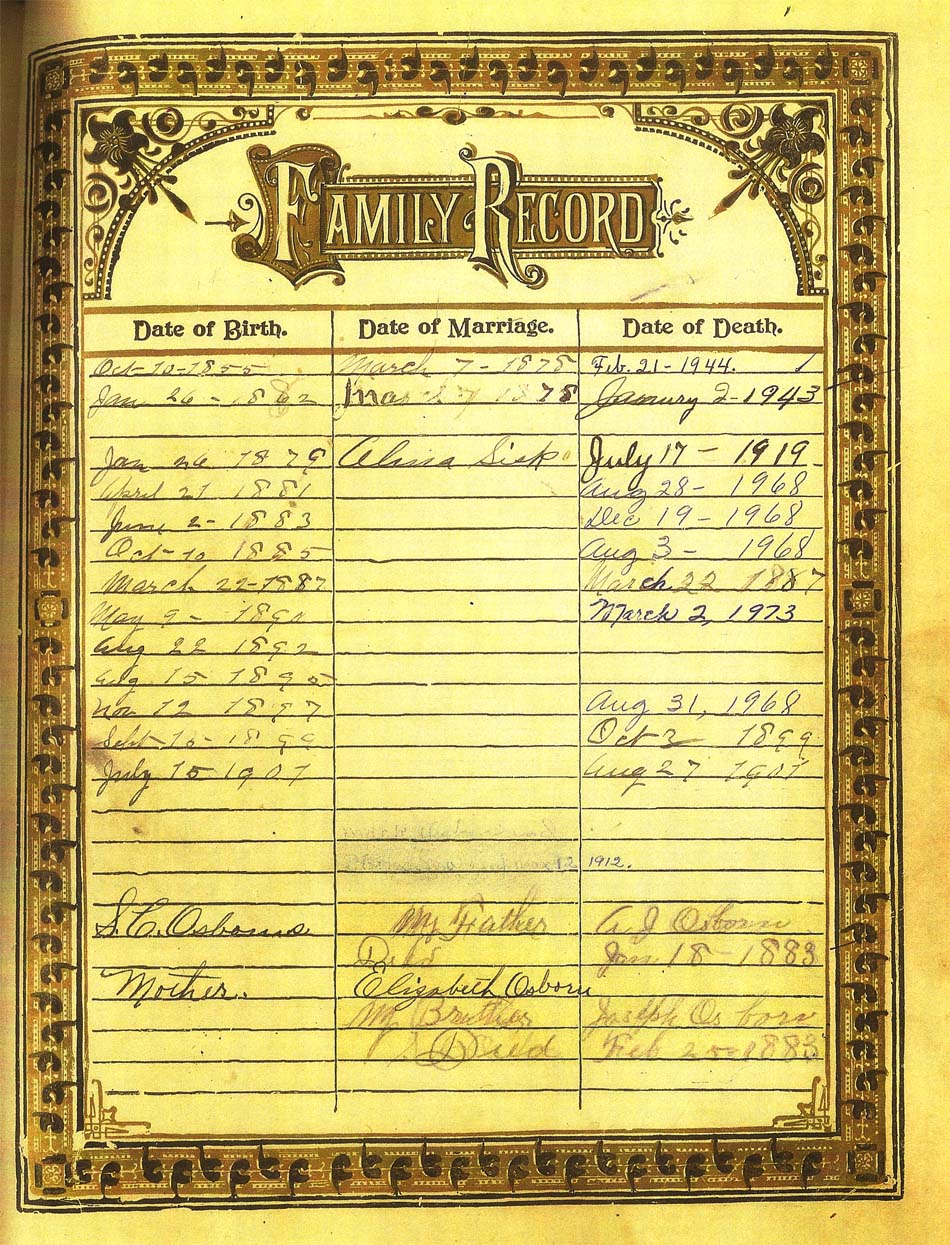 FAMILY RECORD
Date of Birth. Date of Marriage. Date of Death.
Oct 10-1855 March 7-1878 Feb. 21-1944. 1
Jan 26-1862 March 7 1878 January 2-1943
Jan 26 1879 Alma Sisk July 17-1919
April 27 1881 Aug 28- 1968
June 2-1883 Dec 19-1968
Oct-10 1885 Aug 3- 1968
March 22-1887 March 22 1887
May 9- 1890 March 2, 1973
Aug 22 1892
Aug 15 1895
Nov 12 1897 Aug 31, 1968
Sept 15-1899 Oct 2 1899
July 15-1907 Aug 27 1907
12 1912.
S.C. Osborns My Father A J Osborn
Died Jan 18-1883
Mother. Elizabeth Osborn
My Bruther Joseph Osborn
Died Feb 25-1883